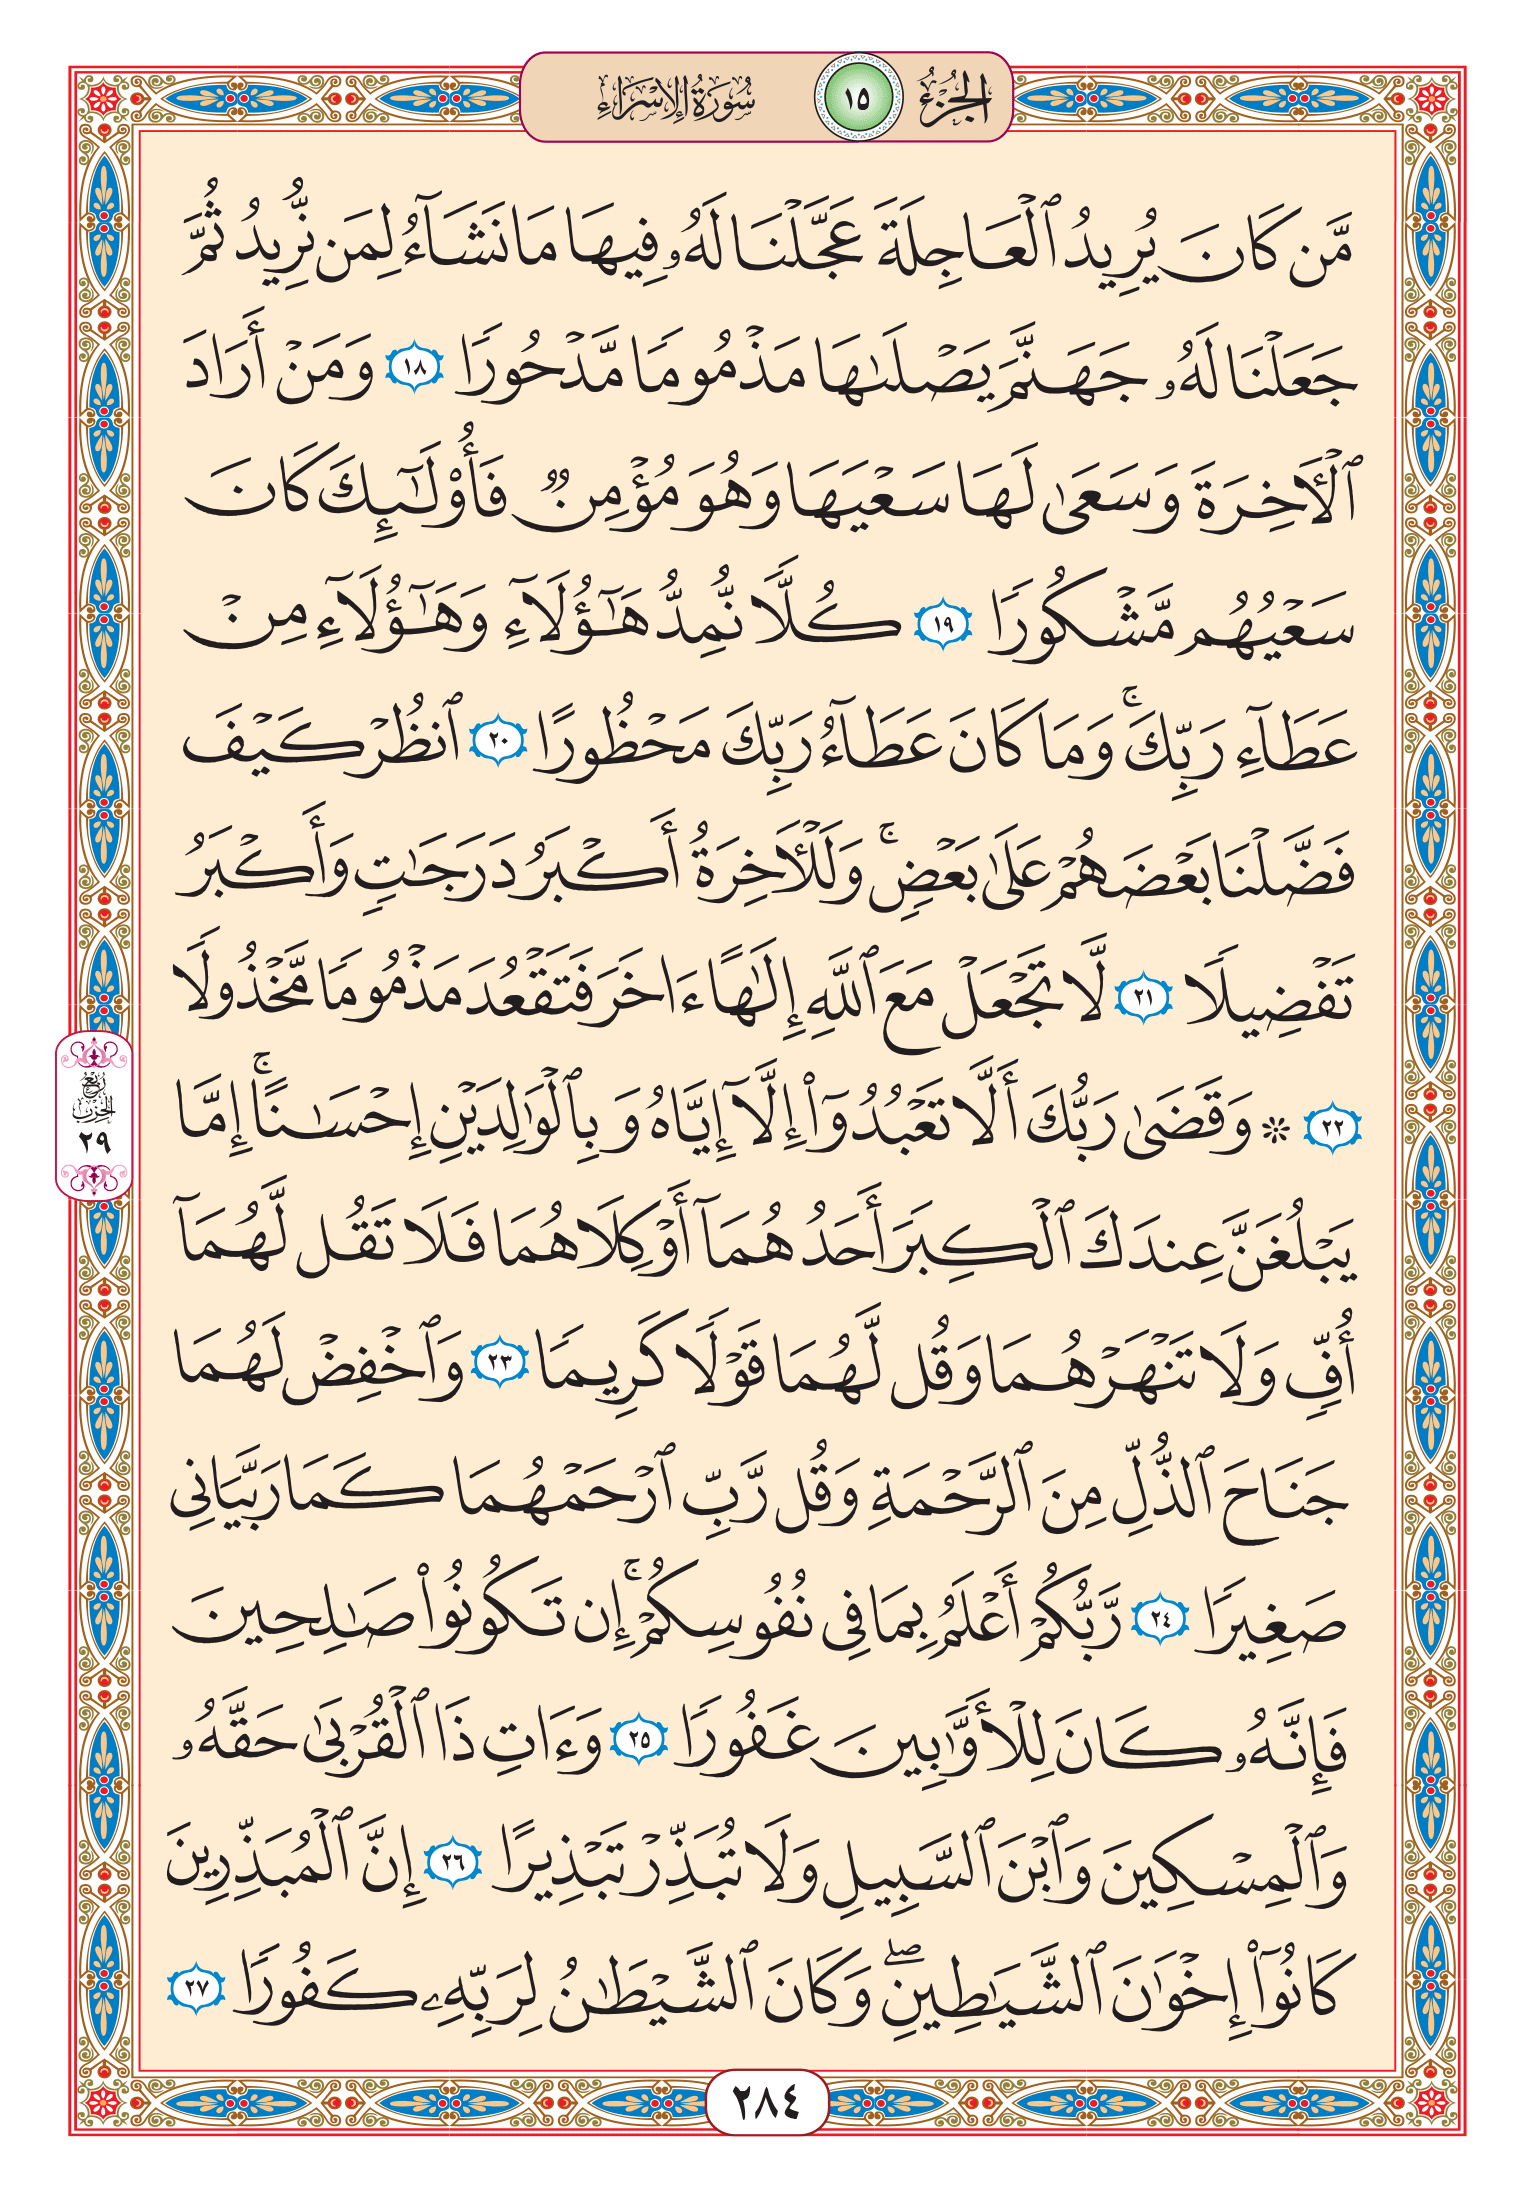 الجزء ١٥ سورة الإسراء
مَّن كَانَ يُرِيدُ ٱلْعَاجِلَةَ عَجَّلْنَا لَهُۥ فِيهَا مَا نَشَآءُ لِمَن نُّرِيدُ ثُمَّ
جَعَلْنَا لَهُۥ جَهَنَّمَ يَصْلَىٰهَا مَذْمُومًا مَّدْحُورًا ١٨ وَمَنْ أَرَادَ
ٱلْأَخِرَةَ وَسَعَىٰ لَهَا سَعْيَهَا وَهُوَ مُؤْمِنٌ فَأُوْلَـٰٓئِكَ كَانَ
سَعْيُهُم مَّشْكُورًا ١٩ كُلًّا نُّمِدُّ هَـٰٓؤُلَآءِ وَهَـٰٓؤُلَآءِ مِنْ
عَطَآءِ رَبِّكَ ۚ وَمَا كَانَ عَطَآءُ رَبِّكَ مَحْظُورًا ٢٠ ٱنظُرْ كَيْفَ
فَضَّلْنَا بَعْضَهُمْ عَلَىٰ بَعْضٍ ۚ وَلَلْأَخِرَةُ أَكْبَرُ دَرَجَـٰتٍ وَأَكْبَرُ
تَفْضِيلًا ٢١ لَّا تَجْعَلْ مَعَ ٱللَّهِ إِلَـٰهًا ءَاخَرَ فَتَقْعُدَ مَذْمُومًا مَّخْذُولًا
٢٢ ۞ وَقَضَىٰ رَبُّكَ أَلَّا تَعْبُدُوٓا۟ إِلَّآ إِيَّاهُ وَبِٱلْوَٰلِدَيْنِ إِحْسَـٰنًا ۚ إِمَّا
يَبْلُغَنَّ عِندَكَ ٱلْكِبَرَ أَحَدُهُمَآ أَوْ كِلَاهُمَا فَلَا تَقُل لَّهُمَآ
أُفٍّ وَلَا تَنْهَرْهُمَا وَقُل لَّهُمَا قَوْلًا كَرِيمًا ٢٣ وَٱخْفِضْ لَهُمَا
جَنَاحَ ٱلذُّلِّ مِنَ ٱلرَّحْمَةِ وَقُل رَّبِّ ٱرْحَمْهُمَا كَمَا رَبَّيَانِى
صَغِيرًا ٢٤ رَّبُّكُمْ أَعْلَمُ بِمَا فِى نُفُوسِكُمْ ۚ إِن تَكُونُوا۟ صَـٰلِحِينَ
فَإِنَّهُۥ كَانَ لِلْأَوَّٰبِينَ غَفُورًا ٢٥ وَءَاتِ ذَا ٱلْقُرْبَىٰ حَقَّهُۥ
وَٱلْمِسْكِينَ وَٱبْنَ ٱلسَّبِيلِ وَلَا تُبَذِّرْ تَبْذِيرًا ٢٦ إِنَّ ٱلْمُبَذِّرِينَ
كَانُوٓا۟ إِخْوَٰنَ ٱلشَّيَـٰطِينِ ۖ وَكَانَ ٱلشَّيْطَـٰنُ لِرَبِّهِۦ كَفُورًا ٢٧
ربع
الحزب
٢٩
٢٨٤